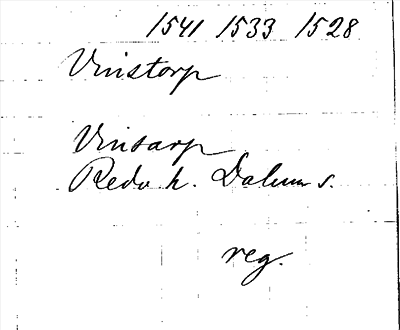 1541 1533 1528
Vinstorp
Vinsarp
Redv. h. Dalum s.
reg.